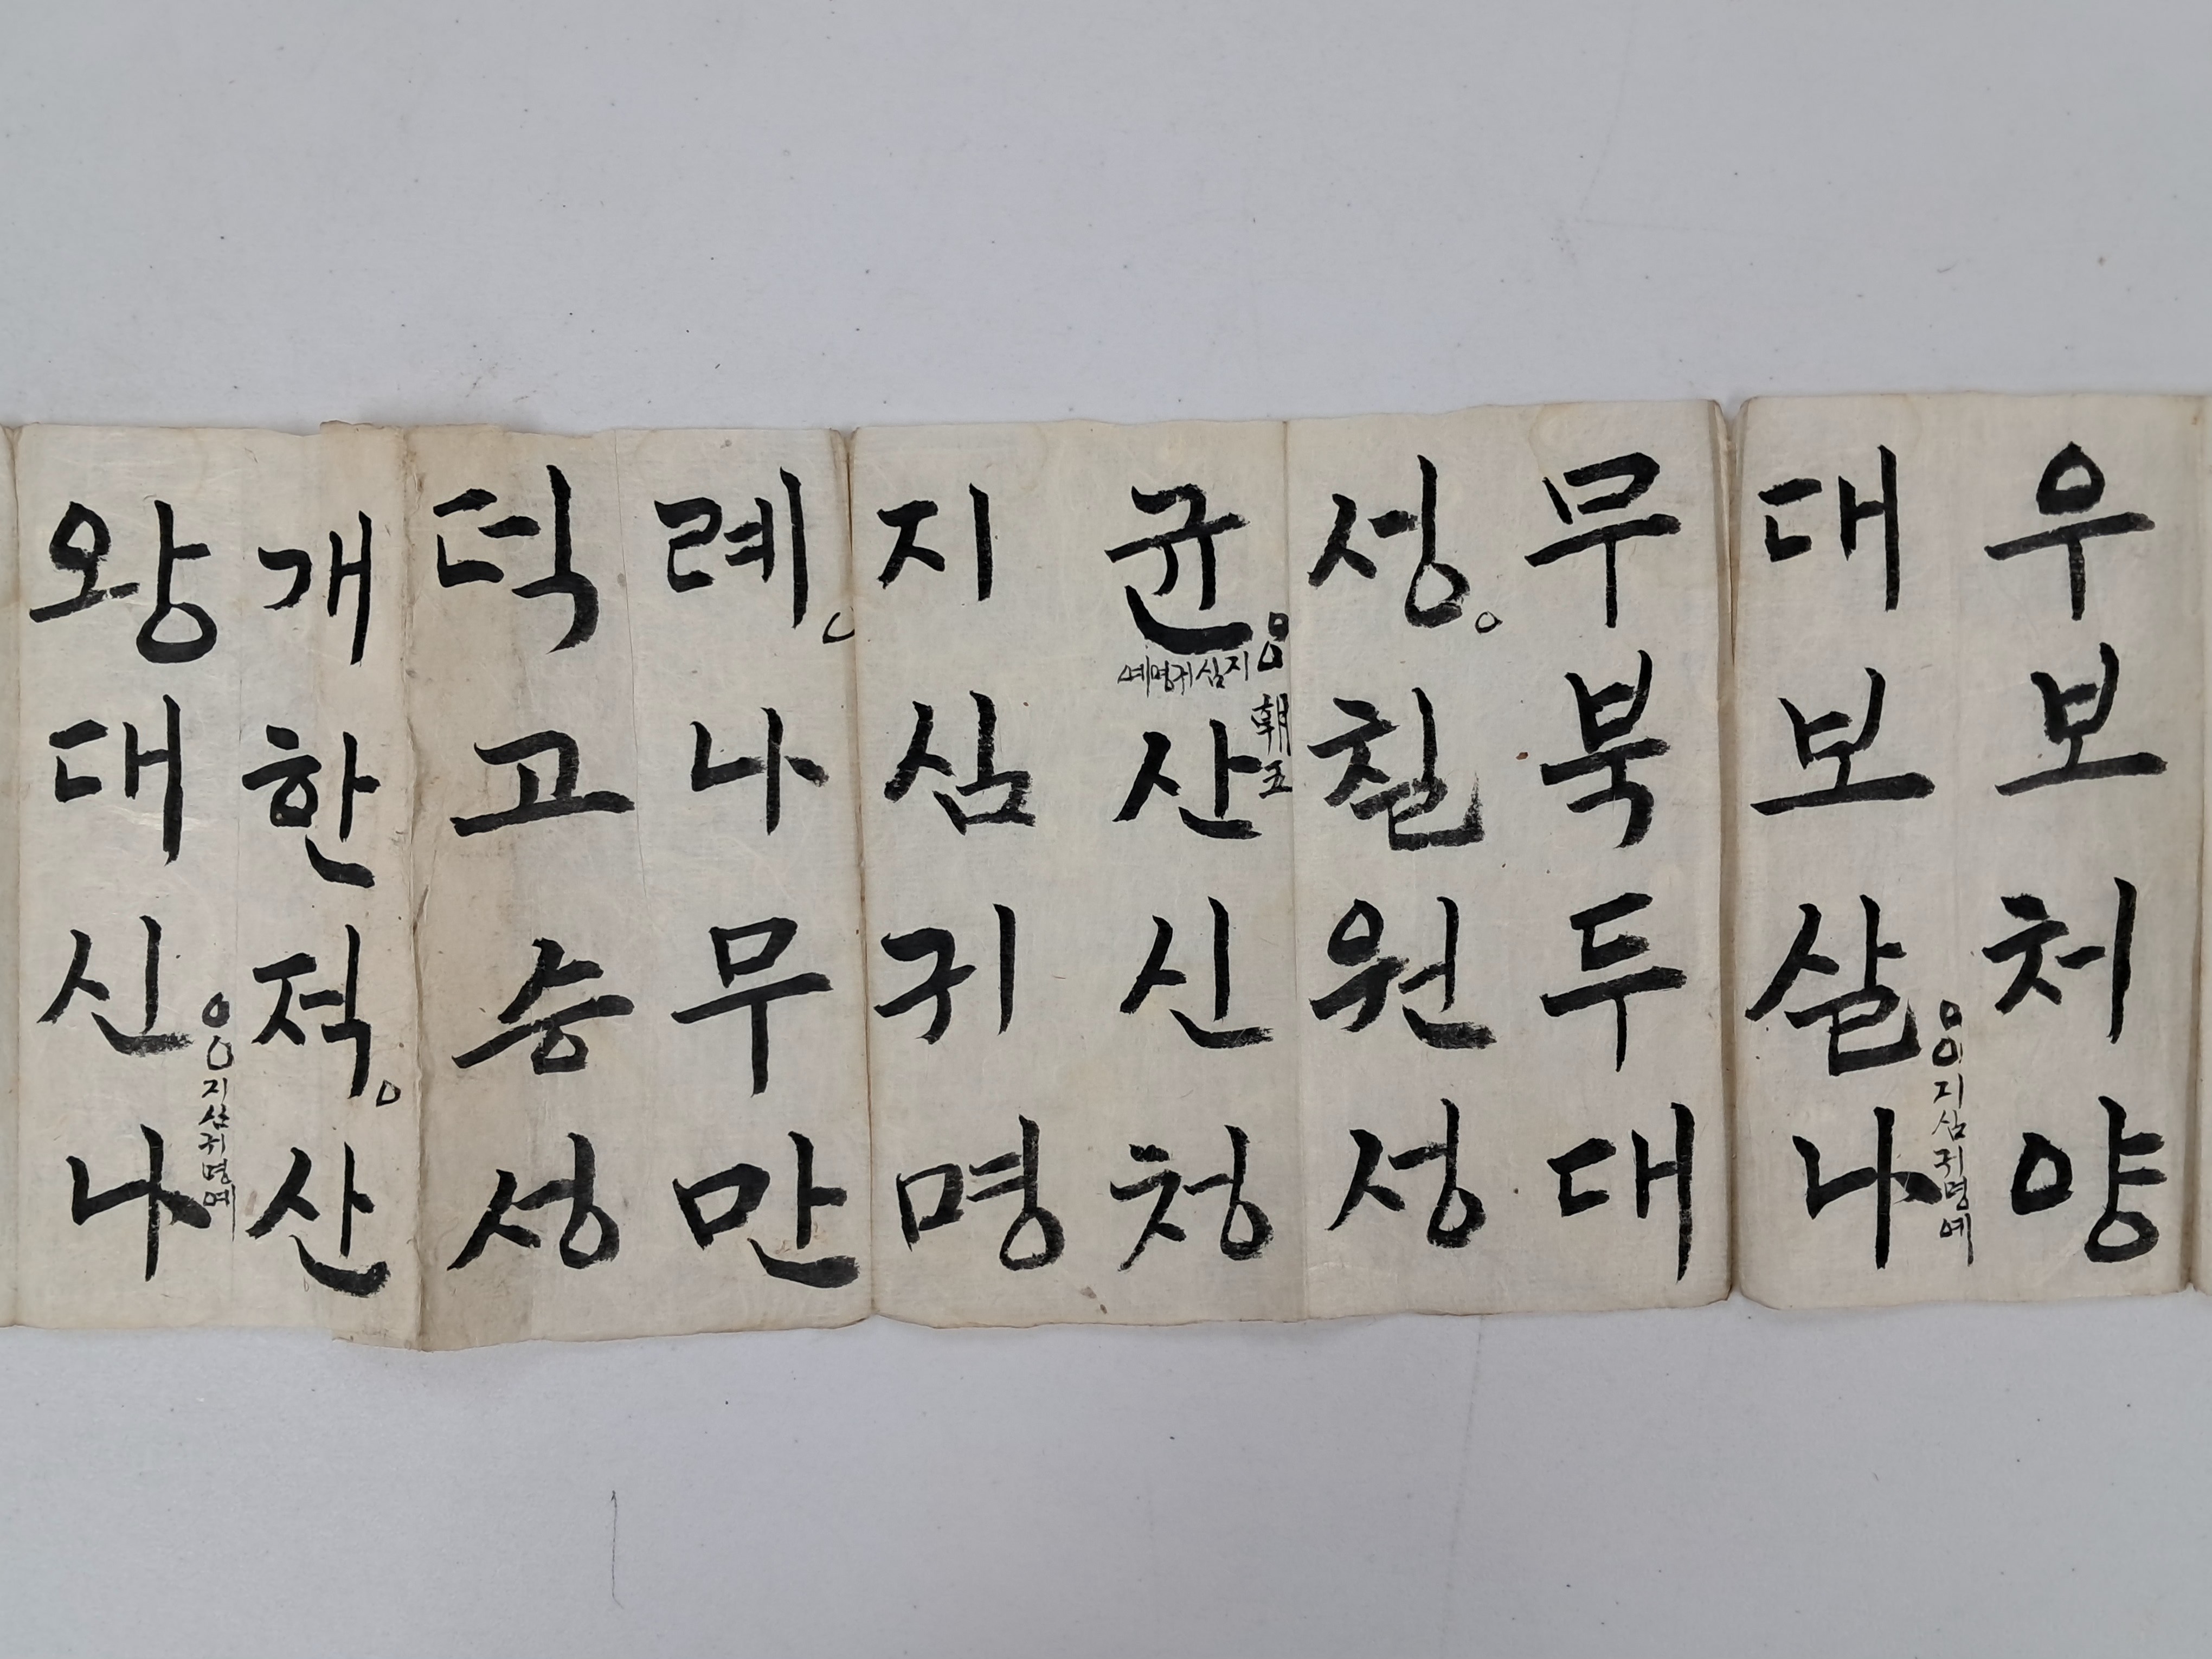 우보처양
지심귀명예
대보살나
무북두대
성。칠원성
朝五
예명귀심지
균산신청
지심귀명
례。나무만
덕고승성
개한적。산
지심귀명예
왕대신나